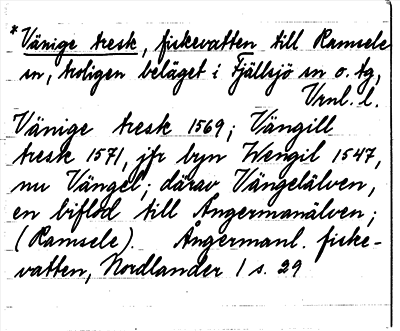 *Vänige tresk, fiskevatten till Ramsele
sn, troligen beläget i Fjällsjö sn o. tg,
Vrnl. l.
Vänige tresk 1569; Vängill
tresk 1571, jfr byn Wengil 1547,
nu Vängel; därav Vängelälven,
en biflod till Ångermanälven;
(Ramsele). Ångermanl. fiske-
vatten, Nordlander 1 s. 29